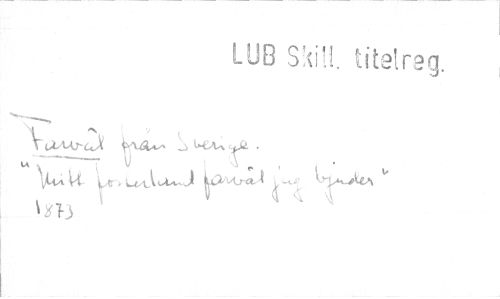 LUB Skill. titelreg.
Farväl från Sverige.
"Mitt fosterland farväl jag bjuder"
1873